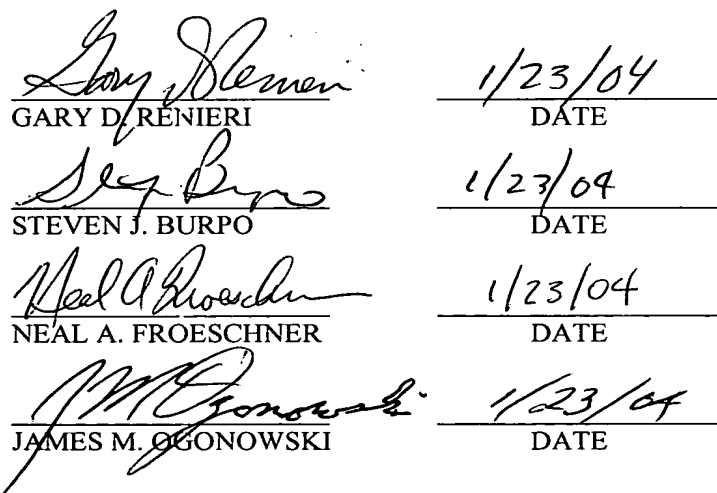 Gary D Renieri 1/23/04
GARY D. RENIERI DATE
Steven Burpo 1/23/04
STEVEN J. BURPO DATE
Neal A Froeschner 1/23/04
NEAL A. FROESCHNER DATE
J M Ogonowski 1/23/04
JAMES M. OGONOWSKI DATE